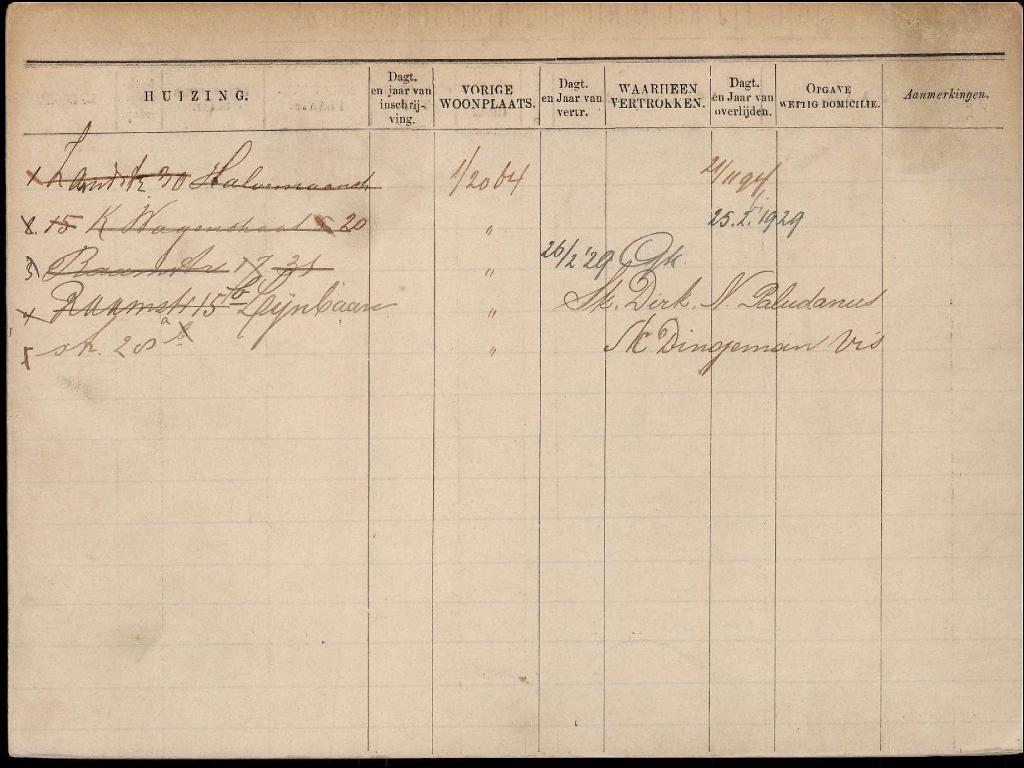 HUIZING.
Dagt. en jaar van inschrij- ving.
VORIGE WOONPLAATS.
Dagt. en Jaar van vertr.
WAARHEEN VERTROKKEN.
Dagt. en Jaar van overlijden.
OPGAVE WETTIG DOMICILIE.
Aanmerkingen.
Zandstr 30 Halvemaanstr 1/2064 21/11 94
15 K Wagenstraat 20 " 25.2.1929
3 Raamstr 17 31 " 26/2 '29 Gk
4 Raamstr 15 Lijnbaan " Sk. Dirk. N. Paludanus
5 str. 20 a b " Sk Dingeman Vis